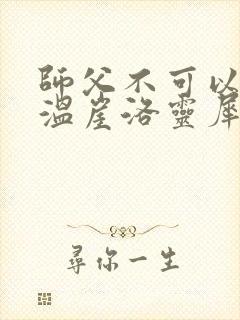 師父不可以
溫崖洛靈犀
尋你一生